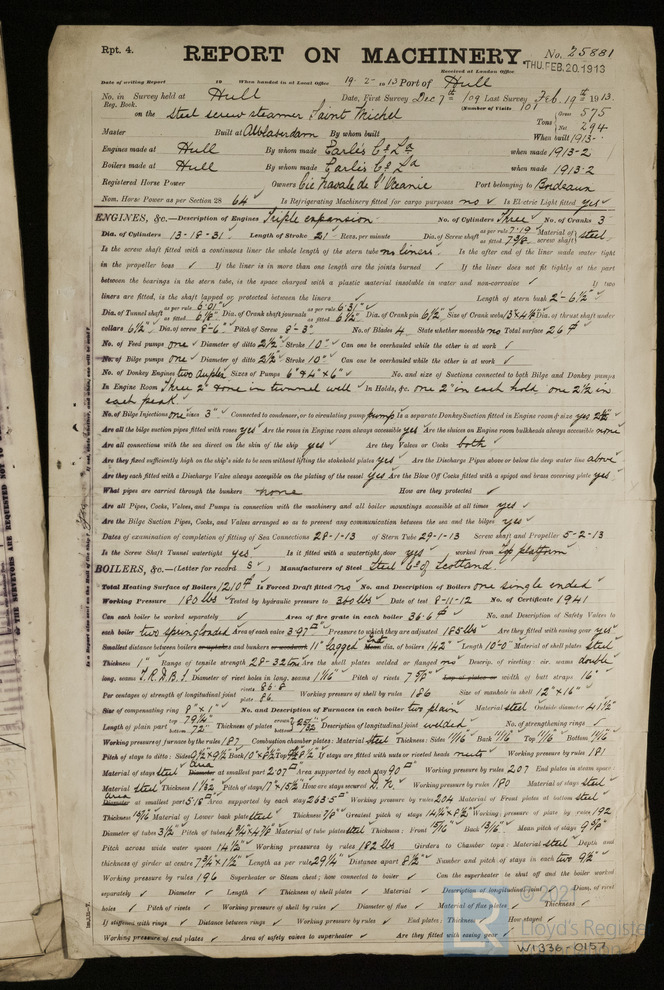 Rpt. 4.
REPORT ON MACHINERY.
No. 25881
THU.FEB.20.1913
Date of writing Report 19 When handed in at Local Office 19-2-1913 Port of Hull
Received at London Office
No. in Survey held at Hull Date, First Survey Dec 7th 109 Last Survey Feb. 19th 1913.
Reg. Book. (Number of Visits 101
on the Steel screw steamer Saint Michel Tons { Gross 575
Net 294
Master Built at By whom built When built 1913-
Engines made at Hull By whom made Earle's Co Ld when made 1913-2
Boilers made at Hull By whom made Earle's Co Ld when made 1913-2
Registered Horse Power Owners Cie Navale de l'Oceanie Port belonging to Bordeaux
Nom. Horse Power as per Section 28 64 Is Refrigerating Machinery fitted for cargo purposes no Is Electric Light fitted yes
ENGINES, &c.—Description of Engines Triple expansion No. of Cylinders Three No. of Cranks 3
Dia. of Cylinders 13-18-31 Length of Stroke 21 Revs. per minute Dia. of Screw shaft as per rule 7.19 as fitted 7 3/8 Material of screw shaft steel
Is the screw shaft fitted with a continuous liner the whole length of the stern tube no liners Is the after end of the liner made water tight
in the propeller boss If the liner is in more than one length are the joints burned If the liner does not fit tightly at the part
between the bearings in the stern tube, is the space charged with a plastic material insoluble in water and non-corrosive If two
liners are fitted, is the shaft lapped or protected between the liners Length of stern bush 2'-6 1/2"
Dia. of Tunnel shaft as per rule 6.01" as fitted 6 1/8" Dia. of Crank shaft journals as per rule 6.31" as fitted 6 1/2" Dia. of Crank pin 6 1/2" Size of Crank webs 13"x4 1/4" Dia. of thrust shaft under
collars 6 1/2" Dia. of screw 8'-6" Pitch of Screw 8'-3" No. of Blades 4 State whether moveable no Total surface 26
No. of Feed pumps one Diameter of ditto 2 1/2" Stroke 10" Can one be overhauled while the other is at work
No. of Bilge pumps one Diameter of ditto 2 1/2" Stroke 10" Can one be overhauled while the other is at work
No. of Donkey Engines two duplex Sizes of Pumps 6"x4"x6" No. and size of Suctions connected to both Bilge and Donkey pumps
In Engine Room Three 2" & one in tunnel well In Holds, &c. one 2" in each hold one 2 1/2 in
each peak.
No. of Bilge Injections one sizes 3" Connected to condenser, or to circulating pump pump Is a separate Donkey Suction fitted in Engine room & size yes 2 1/2"
Are all the bilge suction pipes fitted with roses yes Are the roses in Engine room always accessible yes Are the sluices on Engine room bulkheads always accessible none
Are all connections with the sea direct on the skin of the ship yes Are they Valves or Cocks both
Are they fixed sufficiently high on the ship's side to be seen without lifting the stokehold plates yes Are the Discharge Pipes above or below the deep water line above
Are they each fitted with a Discharge Valve always accessible on the plating of the vessel yes Are the Blow Off Cocks fitted with a spigot and brass covering plate yes
What pipes are carried through the bunkers none How are they protected
Are all Pipes, Cocks, Valves, and Pumps in connection with the machinery and all boiler mountings accessible at all times yes
Are the Bilge Suction Pipes, Cocks, and Valves arranged so as to prevent any communication between the sea and the bilges yes
Dates of examination of completion of fitting of Sea Connections 28-1-13 of Stern Tube 29-1-13 Screw shaft and Propeller 5-2-13
Is the Screw Shaft Tunnel watertight yes Is it fitted with a watertight door yes worked from top platform
BOILERS, &c.—(Letter for record S ) Manufacturers of Steel Steel Co. of Scotland
Total Heating Surface of Boilers 1210 Is Forced Draft fitted no No. and Description of Boilers one single ended
Working Pressure 180 lbs Tested by hydraulic pressure to 360 lbs Date of test 8-11-12 No. of Certificate 1941
Can each boiler be worked separately Area of fire grate in each boiler 36.6 No. and Description of Safety Valves to
each boiler two spring loaded Area of each valve 3.97 Pressure to which they are adjusted 185 lbs Are they fitted with easing gear yes
Smallest distance between boilers or uptakes and bunkers or woodwork 11" lagged dia. of boilers 142" Length 10'-0" Material of shell plates steel
Thickness 1" Range of tensile strength 28-32 tons Are the shell plates welded or flanged no Descrip. of riveting: cir. seams double
long. seams T.R.D.B.S. Diameter of rivet holes in long. seams 1 1/16" Pitch of rivets 7 5/8" Lap of plates or width of butt straps 16"
Per centages of strength of longitudinal joint rivets 86.8 plate 86 Working pressure of shell by rules 186 Size of manhole in shell 12"x16"
Size of compensating ring 8"x1" No. and Description of Furnaces in each boiler two plain Material steel Outside diameter 41 1/2"
Length of plain part top 79 1/4" bottom 72" Thickness of plates crown bottom 25/32" Description of longitudinal joint welded No. of strengthening rings
Working pressure of furnace by the rules 187 Combustion chamber plates: Material steel Thickness: Sides 11/16" Back 11/16" Top 11/16" Bottom 11/16"
Pitch of stays to ditto: Sides Back Top If stays are fitted with nuts or riveted heads nuts Working pressure by rules 181
Material of stays steel Area at smallest part 2.07 Area supported by each stay 90 Working pressure by rules 207 End plates in steam space:
Material steel Thickness 1 1/32 Pitch of stays 17"x15 1/2" How are stays secured D.N. Working pressure by rules 180 Material of stays steel
Area at smallest part 5.18 Area supported by each stay 263.5 Working pressure by rules 204 Material of Front plates at bottom steel
Thickness 13/16 Material of Lower back plate steel Thickness 7/8" Greatest pitch of stays 14 1/2"x8 1/2" Working pressure of plate by rules 192
Diameter of tubes 3 1/2" Pitch of tubes Material of tube plates steel Thickness: Front 15/16" Back 13/16" Mean pitch of stays 9 5/8"
Pitch across wide water spaces 14 1/2" Working pressures by rules 182 lbs Girders to Chamber tops: Material steel Depth and
thickness of girder at centre 7 3/4"x1 1/2" Length as per rule 29 1/4" Distance apart 8 1/2" Number and pitch of stays in each two 9 1/2"
Working pressure by rules 196 Superheater or Steam chest; how connected to boiler Can the superheater be shut off and the boiler worked
separately Diameter Length Thickness of shell plates Material Description of longitudinal joint Diam. of rivet
holes Pitch of rivets Working pressure of shell by rules Diameter of flue Material of flue plates Thickness
If stiffened with rings Distance between rings Working pressure by rules End plates: Thickness How stayed
Working pressure of end plates Area of safety valves to superheater Are they fitted with easing gear
© 2021
Lloyd's Register
W1336-0157